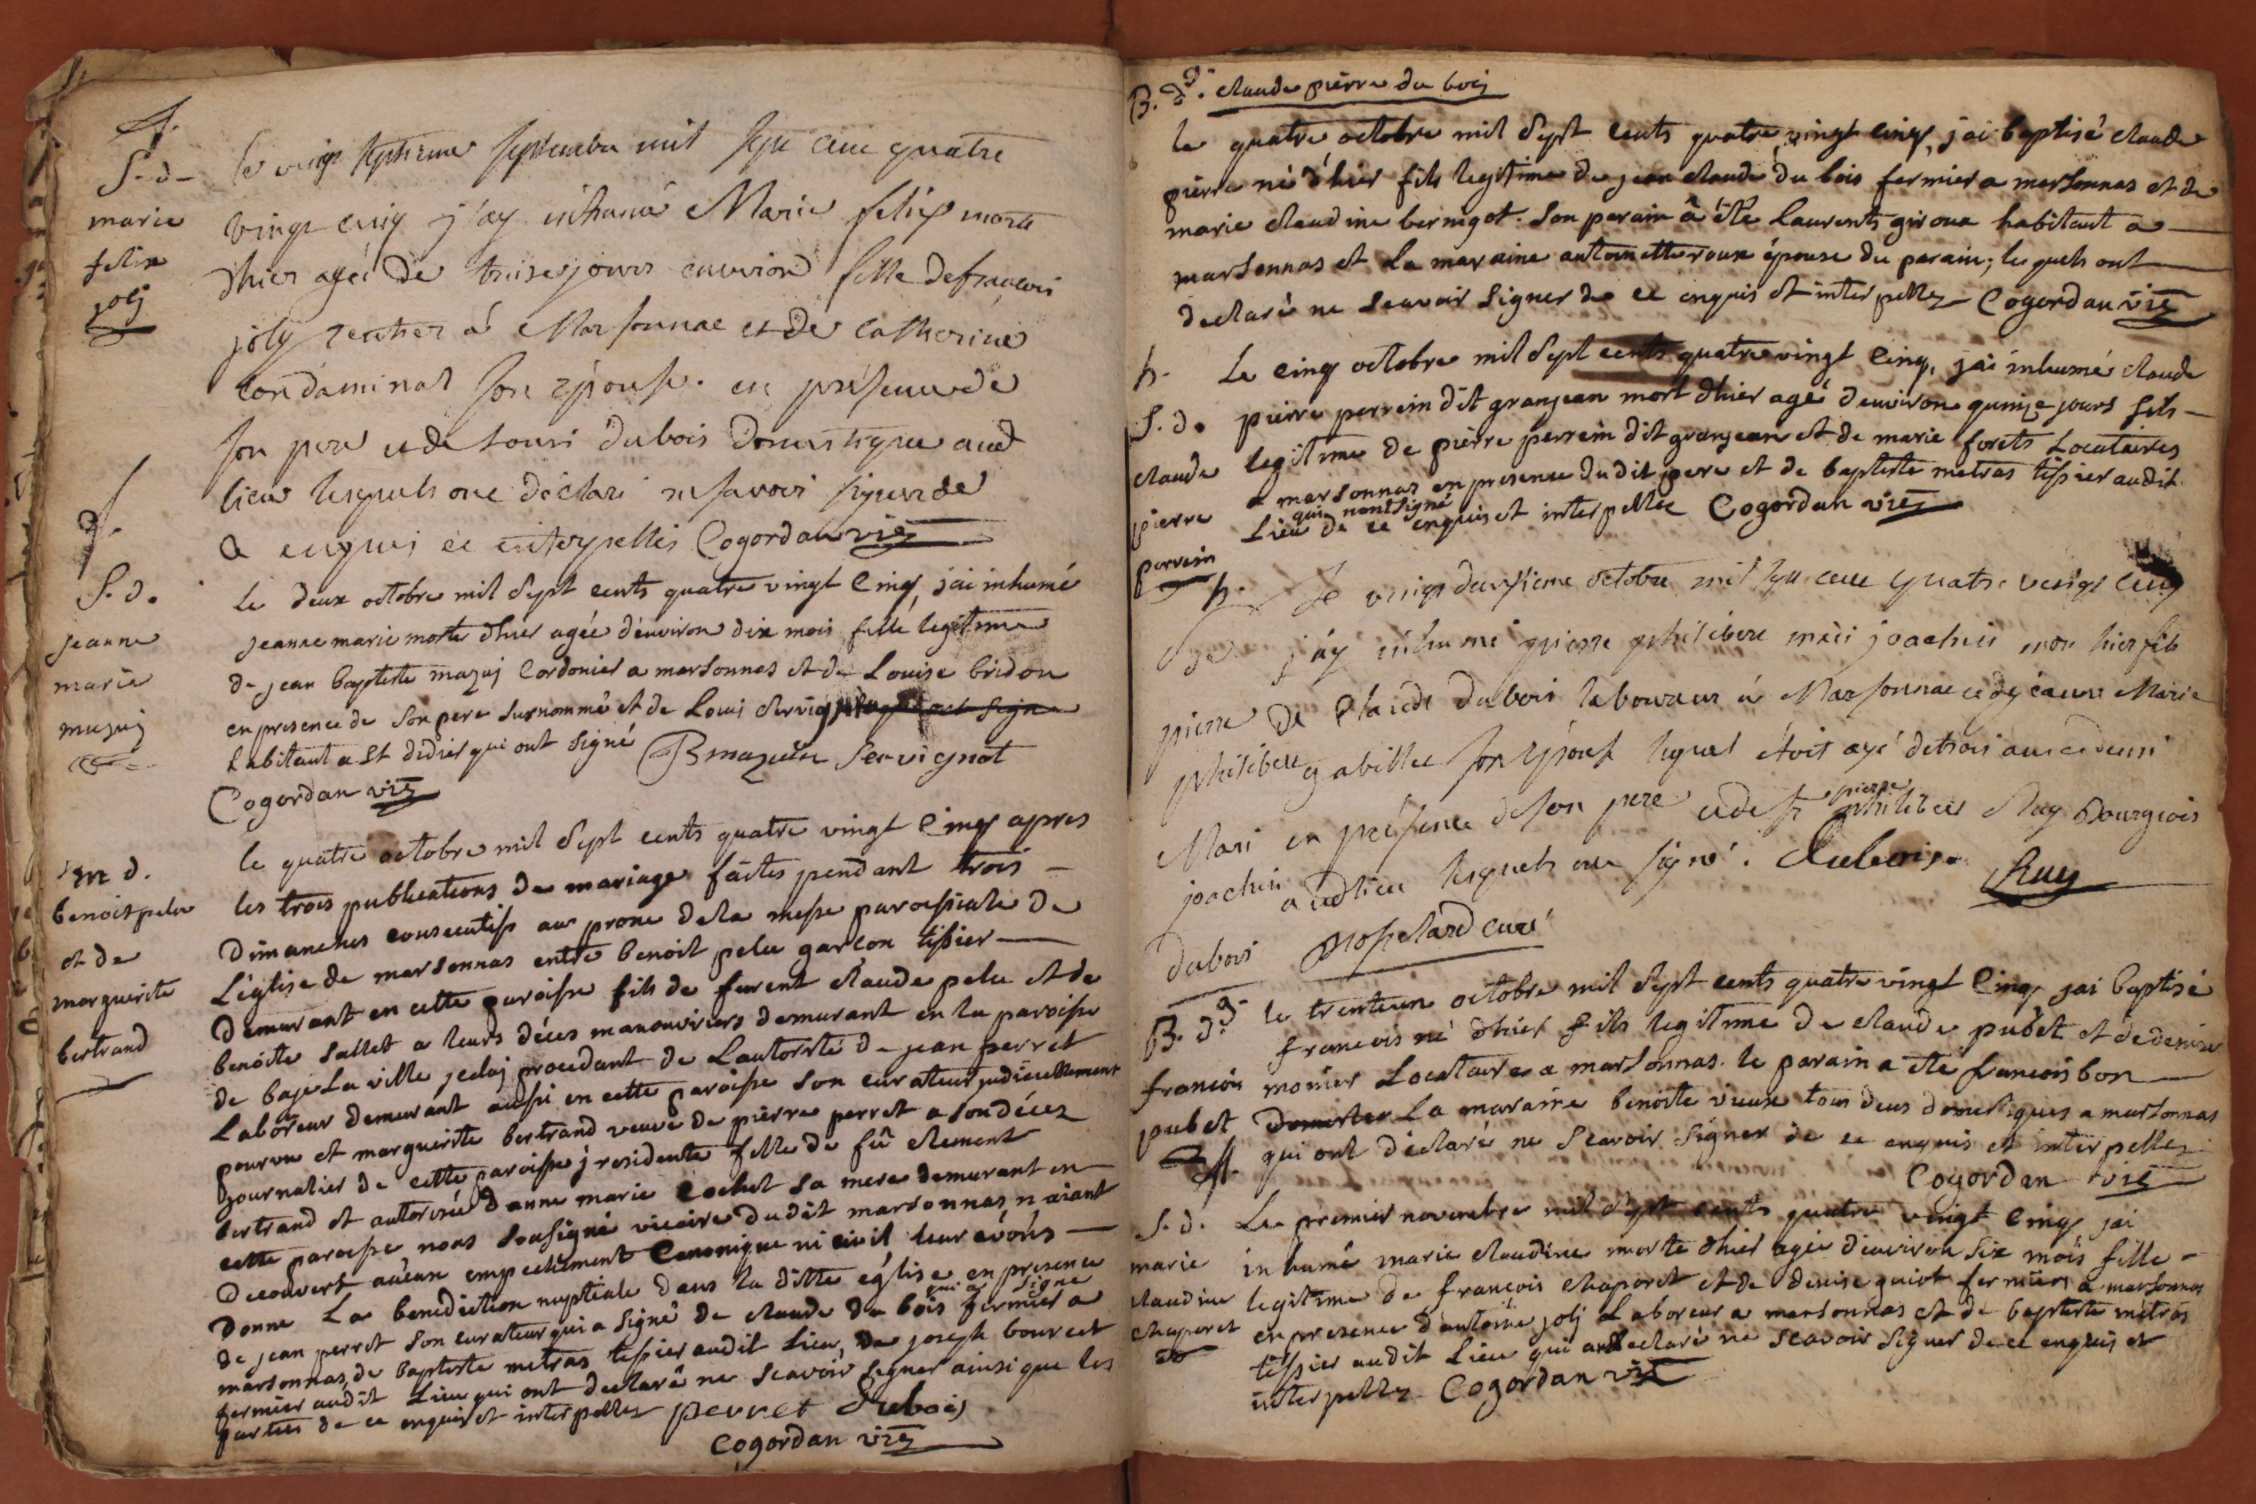 f.
S. d.
marie
felix
joly
le vingt septieme septembre mil sept cent quatre
vingt cinq j'ay inhumé Marie felix morte
d'hier agée de treise jours environ fille de francois
joly rentier a Marsonnac et de catherine
condaminas son epouse. en présence de
son pere et de Louis dubois domestique aud
lieu lesquels ont déclaré ne savoir signer de
ce enquis et interpellés Cogordan vic
f.
S. d.
jeanne
marie
mazuy
le deux octobre mil sept cents quatre vingt cinq, jai inhumé
jeanne marie morte d'hier agée d'environ dix mois fille legitime
de jean baptiste mazuy cordonier a marsonnas et de Louise bridon
en presence de son pere surnommé et de Louis servignot
habitant a St didier qui ont signé B mazuin Servignot
Cogordan vic
m d.
benoit pelu
et de
marguerite
bertrand
le quatre octobre mil sept cents quatre vingt cinq apres
les trois publications de mariage faites pendant trois
dimanches consecutifs au prone de la messe paroissiale de
L'église de marsonnas entre benoit pelu garcon tissier
demurant en cette paroisse fils de furent claude pelu et de
benoite sallet a leurs déces manouvriers demurant en la paroisse
de bage La ville jceluj procedant de Lautorité de jean perret
Laboreur demurant aussi en cette paroisse son curateur judiciellement
pourvu et marguerite bertrand veuve de pierre perret a son décez
journalier de cette paroisse j residente fille de fû clement
bertrand et autorisée d'anne marie cochet sa mere demurant en
cette paroisse nous sousigné vicaire dudit marsonnas n'aiant
decouvert aucun empechement canonique ni civil leur avons
donné La benediction nuptiale dans la ditte église en presence
de jean perret son curateur qui a signé de claude du bois fermier a
qui a signé
marsonnas, de baptiste metras tissier audit Lieu, de joseph bourcet
fermier audit Lieu qui ont declaré ne scavoir signer ainsi que les
parties de ce enquis et interpellez perret Dubois
Cogordan vic
B. d. claude pierre du bois
le quatre octobre mil sept cents quatre vingt cinq, jai baptisé claude
pierre né d'hier fils legitime de jean claude du bois fermier a marsonnas et de
marie claudine bernigot. son parain a été Laurents giroux habitant a
marsonnas et la maraine antoinette roux épouse du parain; lesquels ont
declaré ne scavoir signer de ce enquis et interpellez Cogordan vic
h.
S. d.
claude
pierre
perrein
Le cinq octobre mil sept cents quatre vingt cinq, jai inhumé claude
pierre perrein dit granjean mort d'hier agé d'environ quinze jours fils
legitime de pierre perrein dit granjean et de marie forets Locataires
a marsonnas en presence dudit pere et de baptiste metras tissier audit
qui n'ont signé
Lieu de ce enquis et interpellez Cogordan vic
h.
S. d.
pierre
philibert
Mari
joachin
dubois
Le vingt deuxieme octobre mil sept cent quatre vingt cinq
j'ay inhumé pierre philibert mari joachin mort hier fils
de Claude dubois laboureur à Marsonnac et de jeanne Marie
gabillet son epouse lequel étoit agé de trois ans et demi
en présence de son pere et de sr pierre philibert Ruy Bourgeois
audlieu lesquels ont signé. Dubois Ruy
curé
B. d.
francois
pubet
le trenteun octobre mil sept cents quatre vingt cinq jai baptisé
francois né d'hier fils legitime de claude pubet et de denise
monier Locataires a marsonnas. le parain a été francois bon
La maraine benoite vieux tous deux domestiques a marsonnas
qui ont declaré ne scavoir signer de ce enquis et interpellez
Cogordan vic
f.
S. d.
marie
claudine
chaperet
Le premier novembre mil sept cents quatre vingt cinq jai
inhumé marie claudine morte d'hier agée d'environ six mois fille
legitime de francois chaperet et de denise guiot fermiers a marsonnas
en presence d'antoine joly Laboreur a marsonnas et de baptiste metras
tissier audit Lieu qui ont declaré ne scavoir signer de ce enquis et
interpellez Cogordan vic